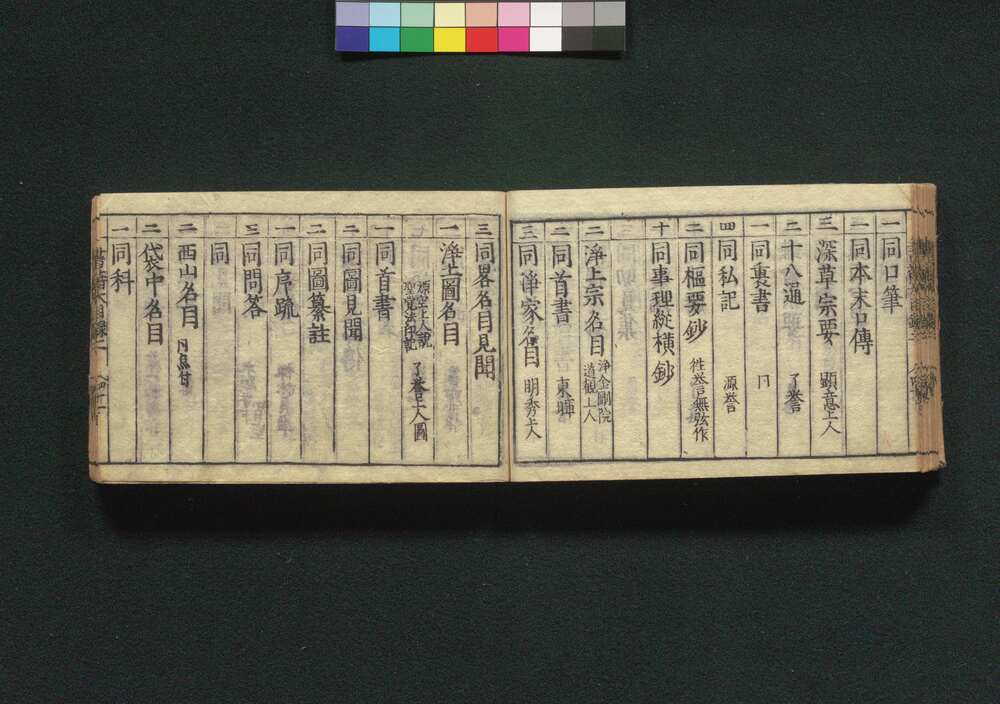 一 同口筆
一 同本末口傳
三 深草宗要 顕意上人
二 十八通 了誉
一 同裏書 同
四 同私記 源誉
二 同樞要鈔 性誉無弦作
十 同事理縱横鈔
二 淨土宗名目 浄金剛院 道観上人
二 同首書 東暉
三 同諍家名目 明秀上人
三 同畧名目見聞
一 淨土圖名目 源空上人説 聖覚法印記 了誉上人圖
一 同首書
二 同圖見聞
二 同圖纂註
一 同序疏
三 同問答
同
二 西山名目
二 袋中名目
一 同科